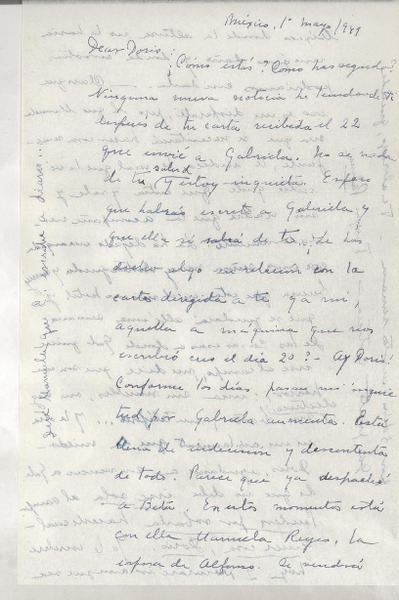 México, 1º mayo, 1949
Dear Doris:
¿Cómo estás? ¿Cómo has seguido?
Ninguna nueva noticia he tenido de ti
después de tu carta recibida el 22
que envié a Gabriela. No se nada
de tu salud y estoy inquieta. Espero
que habrás escrito a Gabriela y
que ella sí sabrá de ti. ¿Le has
dicho algo en relación con la
carta dirigida a ti y a mí,
aquella a máquina que nos
escribió creo el día 20? - Ay Doris!
Conforme los días pasan mi inquie
tud por Gabriela aumenta. Está
llena de indecision y descontenta
de todo. Parece que ya despachó
a Beta. En estos momentos está
con ella Manuela Reyes, la
esposa de Alfonso. Se vendrá